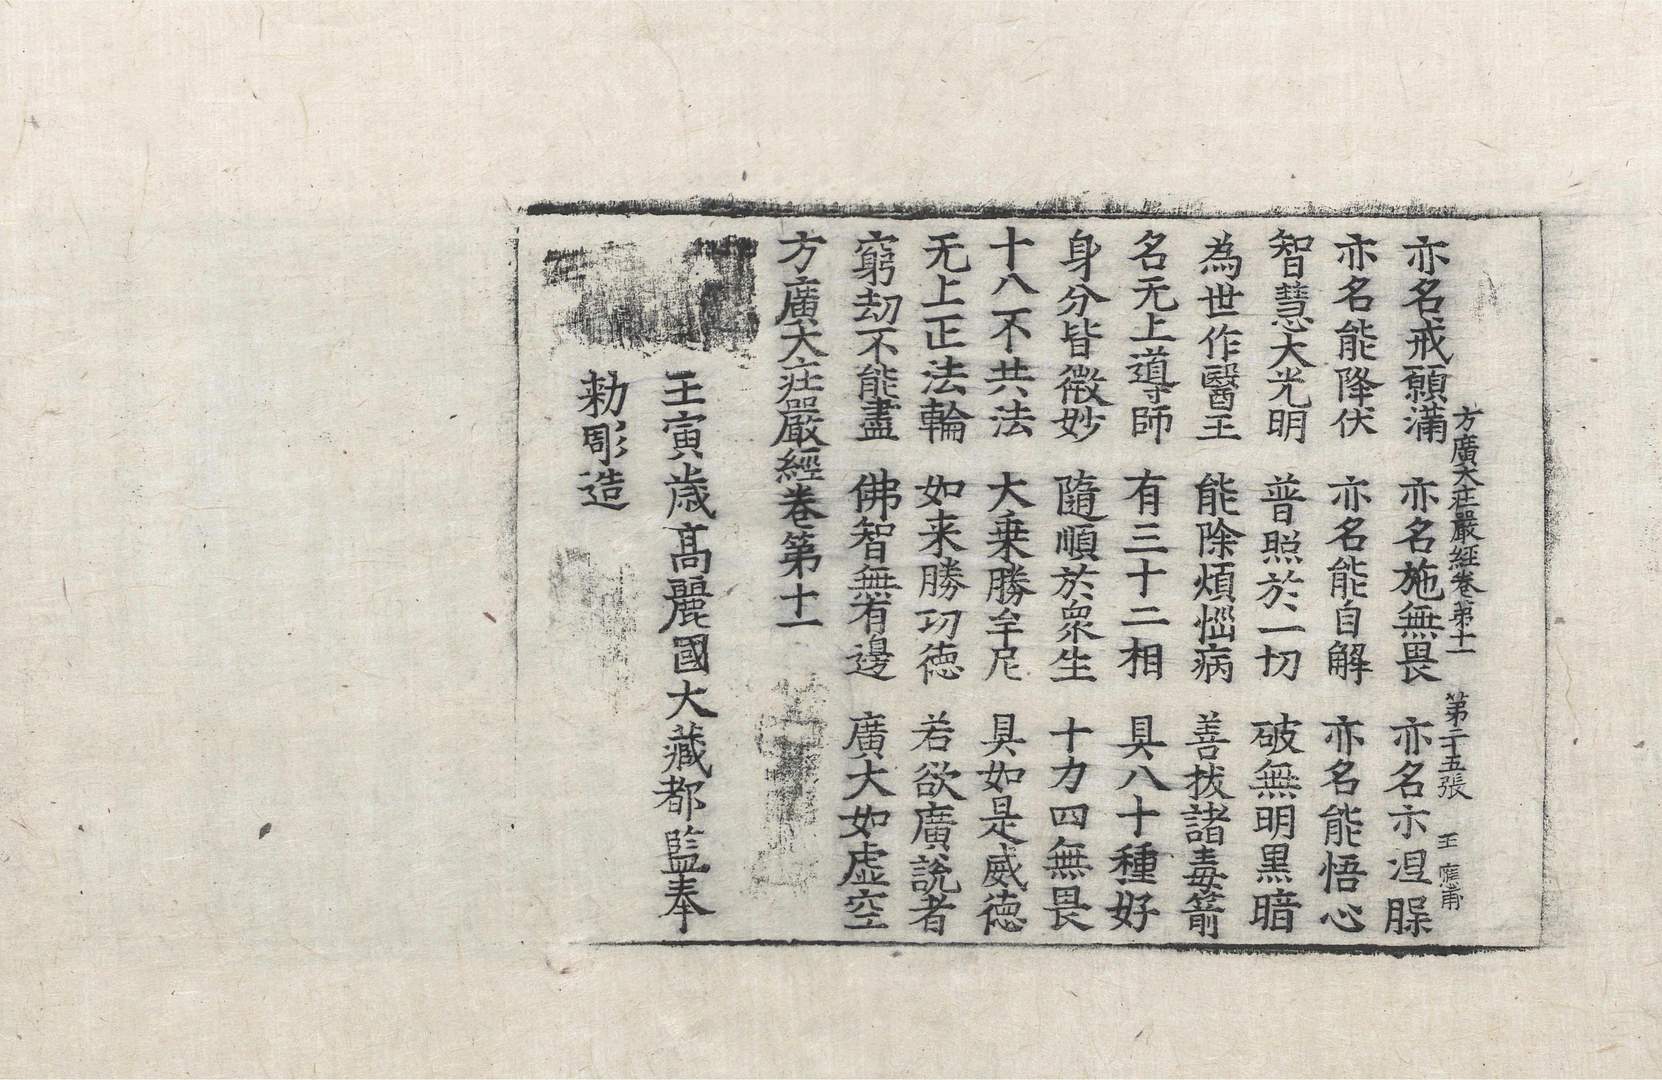 方廣大莊嚴經卷第十一 第二十五張 王
亦名戒願滿 亦名施無畏 亦名示涅
亦名能降伏 亦名能自解 亦名能悟心
智慧大光明 普照於一切 破無明黑暗
為世作醫王 能除煩惱病 善拔諸毒箭
名无上導師 有三十二相 具八十種好
身分皆微妙 隨順於衆生 十力四無畏
十八不共法 大乗勝牟尼 具如是威德
无上正法輪 如来勝功德 若欲廣說者
窮劫不能盡 佛智無有邊 廣大如虛空
方廣大莊嚴經卷第十一
壬寅歲髙麗國大藏都監奉
勅彫造